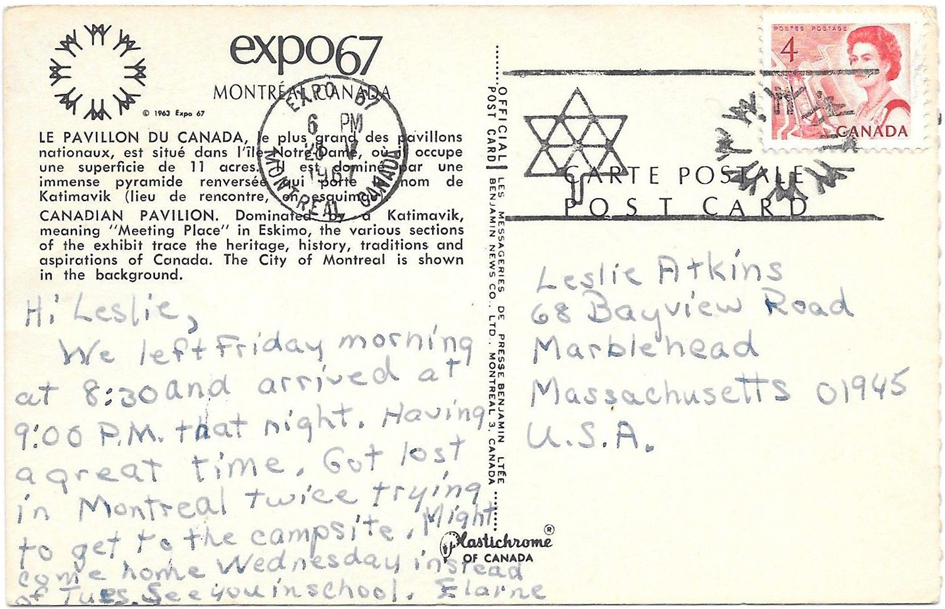 expo67
MONTRÉAL, CANADA
© 1963 Expo 67
LE PAVILLON DU CANADA, le plus grand des pavillons
nationaux, est situé dans l'île Notre-Dame, où il occupe
une superficie de 11 acres. Il est dominé par une
immense pyramide renversée qui porte le nom de
Katimavik (lieu de rencontre, en esquimau).
CANADIAN PAVILION. Dominated by a Katimavik,
meaning "Meeting Place" in Eskimo, the various sections
of the exhibit trace the heritage, history, traditions and
aspirations of Canada. The City of Montreal is shown
in the background.
EXPO 67
6 PM
1967
MONTREAL, CANADA
Hi Leslie,
We left Friday morning
at 8:30 and arrived at
9:00 P.M. that night. Having
a great time. Got lost
in Montreal twice trying
to get to the campsite. Might
come home Wednesday instead
of Tues. See you in school. Elarne
OFFICIAL POST CARD
LES MESSAGERIES DE PRESSE BENJAMIN LTÉE
BENJAMIN NEWS CO., LTD., MONTREAL 3, CANADA
Plastichrome®
OF CANADA
POSTES POSTAGE
4
CANADA
CARTE POSTALE
POST CARD
Leslie Atkins
68 Bayview Road
Marblehead
Massachusetts 01945
U.S.A.